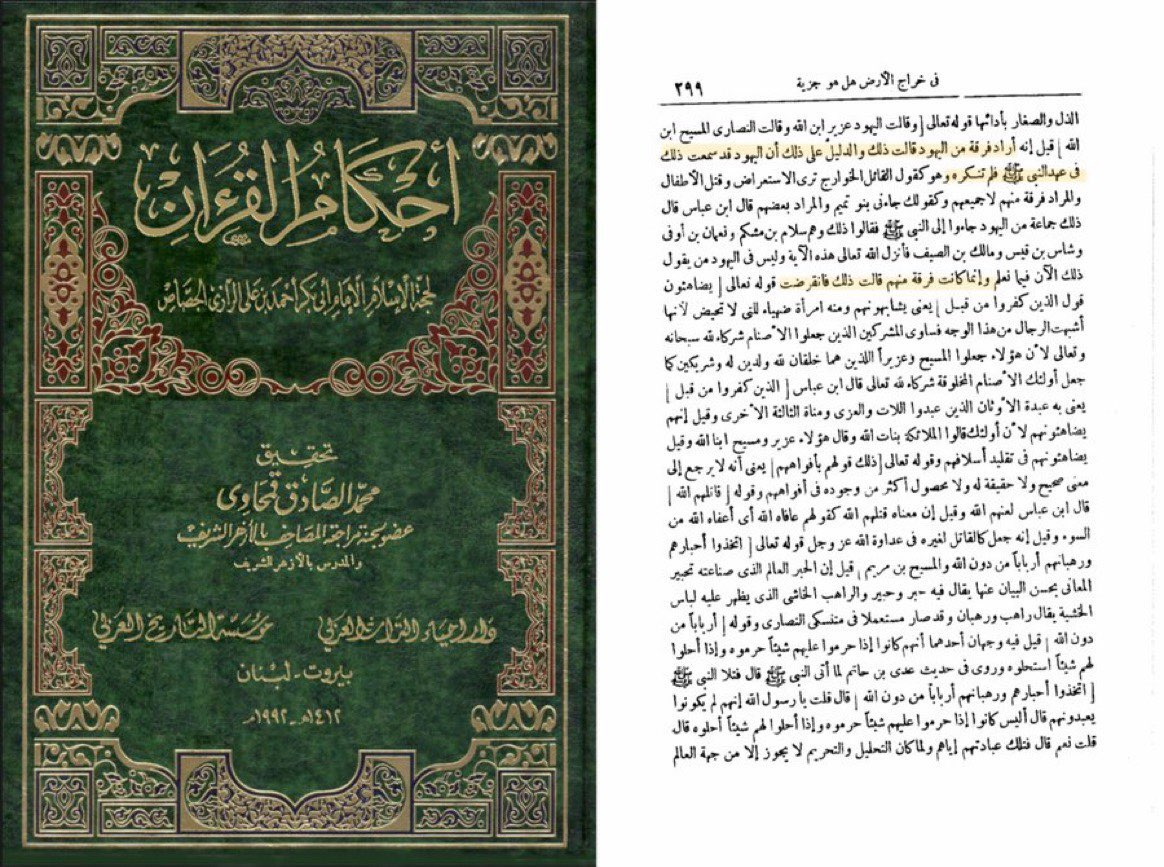 أحكام القرءان
لحجة الإسلام الإمام أبي بكر أحمد بن علي الرازي الجصاص
تحقيق
محمد الصادق قمحاوى
عضو لجنة مراجعة المصاحف بالأزهر الشريف
والمدرس بالأزهر الشريف
دار إحياء التراث العربي مؤسسة التاريخ العربي
بيروت - لبنان
١٤١٢هـ - ١٩٩٢م
فى خراج الأرض هل هو جزية ٢٩٩
الذل والصغار بأدائها قوله تعالى [ وقالت اليهود عزير ابن الله وقالت النصارى المسيح ابن
الله ] قيل إنه أراد فرقة من اليهود قالت ذلك والدليل على ذلك أن اليهود قد سمعت ذلك
فى عهد النبى ﷺ فلم تنكره وهو كقول القائل الخوارج ترى الاستعراض وقتل الأطفال
والمراد فرقة منهم لا جميعهم وكقولك جاءنى بنو تميم والمراد بعضهم قال ابن عباس قال
ذلك جماعة من اليهود جاءوا إلى النبى ﷺ فقالوا ذلك وهم سلام بن مشكم ونعمان بن أوفى
وشاس بن قيس ومالك بن الصيف فأنزل الله تعالى هذه الآية وليس فى اليهود من يقول
ذلك الآن فيما نعلم وإنما كانت فرقة منهم قالت ذلك فانقرضت قوله تعالى [ يضاهئون
قول الذين كفروا من قبل ] يعنى يشابهونهم ومنه امرأة ضهياء للتى لا تحيض لأنها
أشبهت الرجال من هذا الوجه فساوى المشركين الذين جعلوا الأصنام شركاء لله سبحانه
وتعالى لأن هؤلاء جعلوا المسيح وعزيراً اللذين هما خلقان لله ولدين له وشريكين كما
جعل أولئك الأصنام المخلوقة شركاء لله تعالى قال ابن عباس [ الذين كفروا من قبل ]
يعنى به عبدة الأوثان الذين عبدوا اللات والعزى ومناة الثالثة الأخرى وقيل إنهم
يضاهئونهم لأن أولئك قالوا الملائكة بنات الله وقال هؤلاء عزير ومسيح ابنا الله وقيل
يضاهئونهم فى تقليد أسلافهم وقوله تعالى [ ذلك قولهم بأفواههم ] يعنى أنه لا يرجع إلى
معنى صحيح ولا حقيقة له ولا محصول أكثر من وجوده فى أفواههم وقوله [ قاتلهم الله ]
قال ابن عباس لعنهم الله وقيل إن معناه قتلهم الله كقولهم عافاه الله أى أعفاه الله من
السوء وقيل إنه جعل كالقاتل لغيره فى عداوة الله عز وجل قوله تعالى [ اتخذوا أحبارهم
ورهبانهم أرباباً من دون الله والمسيح بن مريم ] قيل إن الحبر العالم الذى صناعته تحبير
المعانى بحسن البيان عنها يقال فيه حبر وحبير والراهب الخاشى الذى يظهر عليه لباس
الخشية يقال راهب ورهبان وقد صار مستعملا فى متنسكى النصارى وقوله [ أرباباً من
دون الله ] قيل فيه وجهان أحدهما أنهم كانوا إذا حرموا عليهم شيئاً حرموه وإذا أحلوا
لهم شيئاً استحلوه وروى فى حديث عدى بن حاتم لما أتى النبى ﷺ قال فتلا النبى ﷺ
[ اتخذوا أحبارهم ورهبانهم أرباباً من دون الله ] قال قلت يا رسول الله إنهم لم يكونوا
يعبدونهم قال أليس كانوا إذا حرموا عليهم شيئاً حرموه وإذا أحلوا لهم شيئاً أحلوه قال
قلت نعم قال فتلك عبادتهم إياهم ولما كان التحليل والتحريم لا يجوز إلا من جهة العالم